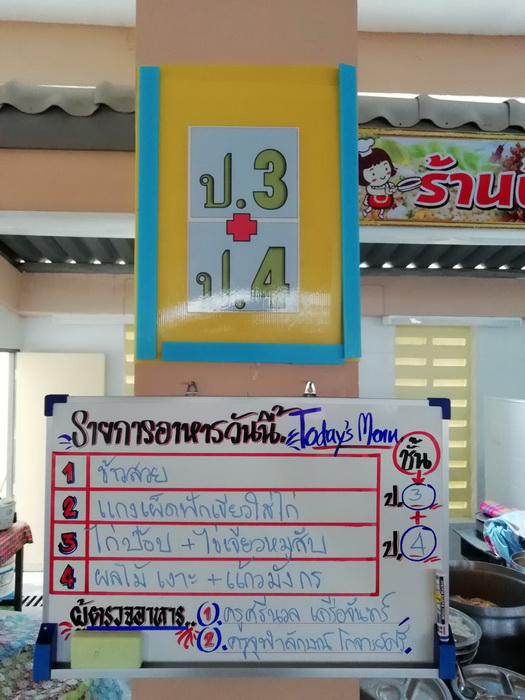 ป.3
+
ป.4
ร้าน
รายการอาหารวันนี้ Today's Menu
ชั้น
1 ข้าวสวย
2 แกงเผ็ดฟักเขียวใส่ไก่
3 ไก่ป๊อป + ไข่เจียวหมูสับ
4 ผลไม้ เงาะ + แก้วมังกร
ป.3
+
ป.4
ผู้ตรวจอาหาร.. 1. ครูศรีนวล เครือจันทร์
2. ครูจุฬาลักษณ์